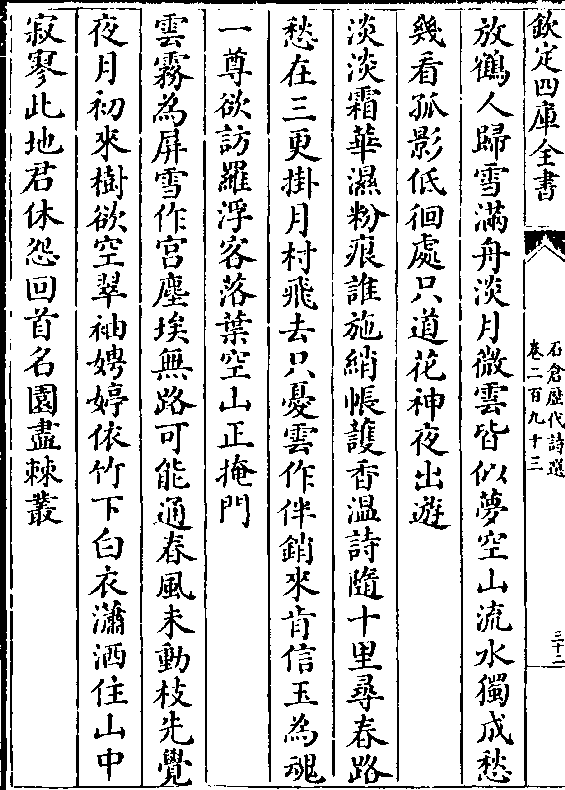 欽定四庫全書
石倉歷代詩選
卷二百九十三
三十二
放鶴人歸雪滿舟淡月微雲皆似夢空山流水獨成愁
幾看孤影低徊處只道花神夜出遊
淡淡霜華濕粉痕誰施綃帳護香温詩隨十里尋春路
愁在三更掛月村飛去只憂雲作伴銷來肯信玉為魂
一尊欲訪羅浮客落葉空山正掩門
雲霧為屏雪作宫塵埃無路可能通春風未動枝先覺
夜月初來樹欲空翠袖娉婷依竹下白衣瀟洒住山中
寂寥此地君休怨回首名園盡棘叢